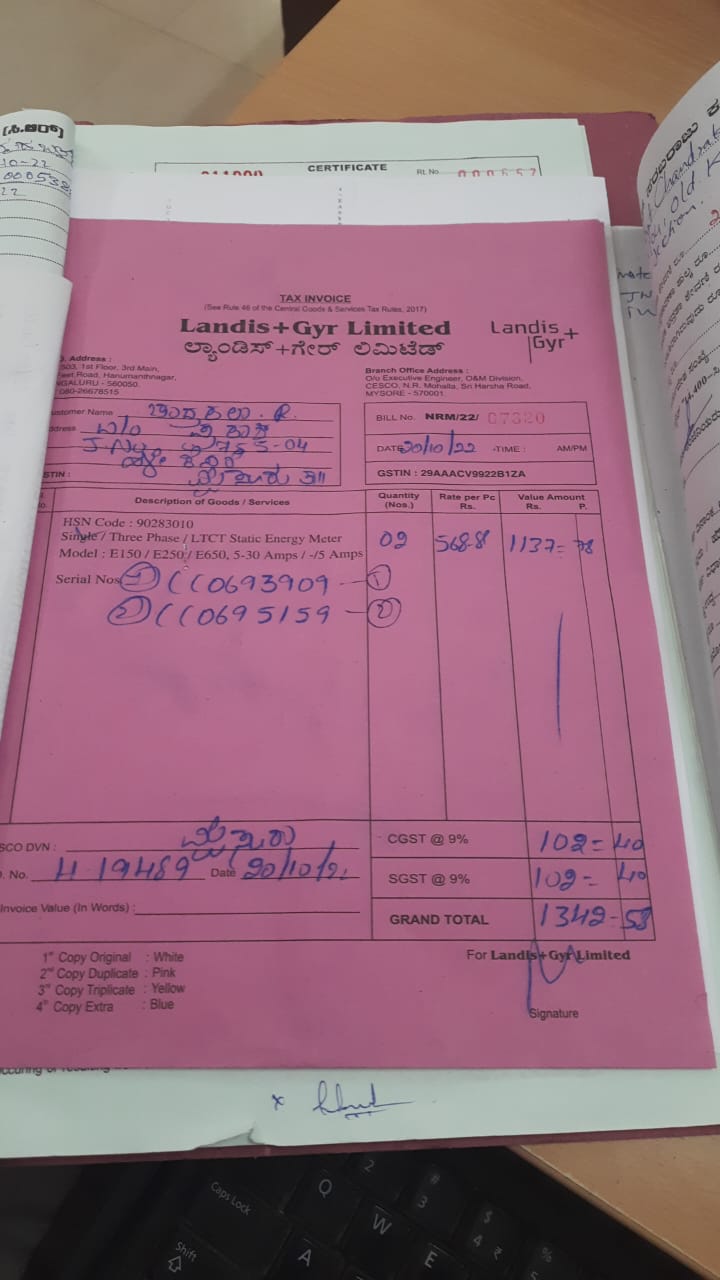 (ಸಿ.ಆರ್)
10-22
CERTIFICATE
Rl. No. 000657
TAX INVOICE
(See Rule 46 of the Central Goods & Services Tax Rules, 2017)
Landis+Gyr Limited
ಲ್ಯಾಂಡಿಸ್+ಗೇರ್ ಲಿಮಿಟೆಡ್
Landis
Gyr+
Address :
503, 1st Floor, 3rd Main,
Feet Road, Hanumanthnagar,
NGALURU - 560050.
080-26678515
Branch Office Address :
O/o Executive Engineer, O&M Division,
CESCO, N.R. Mohalla, Sri Harsha Road,
MYSORE - 570001.
ustomer Name ಚಂದ್ರಕಲಾ . R.
ddress
STIN :
BILL No. NRM/22/ 07320
DATE 20/10/22 TIME : AM/PM
GSTIN : 29AAACV9922B1ZA
Description of Goods / Services
Quantity (Nos.)
Rate per Pc Rs.
Value Amount Rs. P.
HSN Code : 90283010
Single / Three Phase / LTCT Static Energy Meter
Model : E150 / E250 / E650, 5-30 Amps / -/5 Amps
02 568-8 1137= 78
Serial Nos 1 CC0693909 - 1
2 CC0695159 - 2
SCO DVN :
No. 419489 Date 20/10/2
Invoice Value (In Words) :
CGST @ 9% 102= 40
SGST @ 9% 102= 40
GRAND TOTAL 1342-58
1st Copy Original : White
2nd Copy Duplicate : Pink
3rd Copy Triplicate : Yellow
4th Copy Extra : Blue
For Landis+Gyr Limited
Signature
Caps Lock
Q
W
A
E
Shift